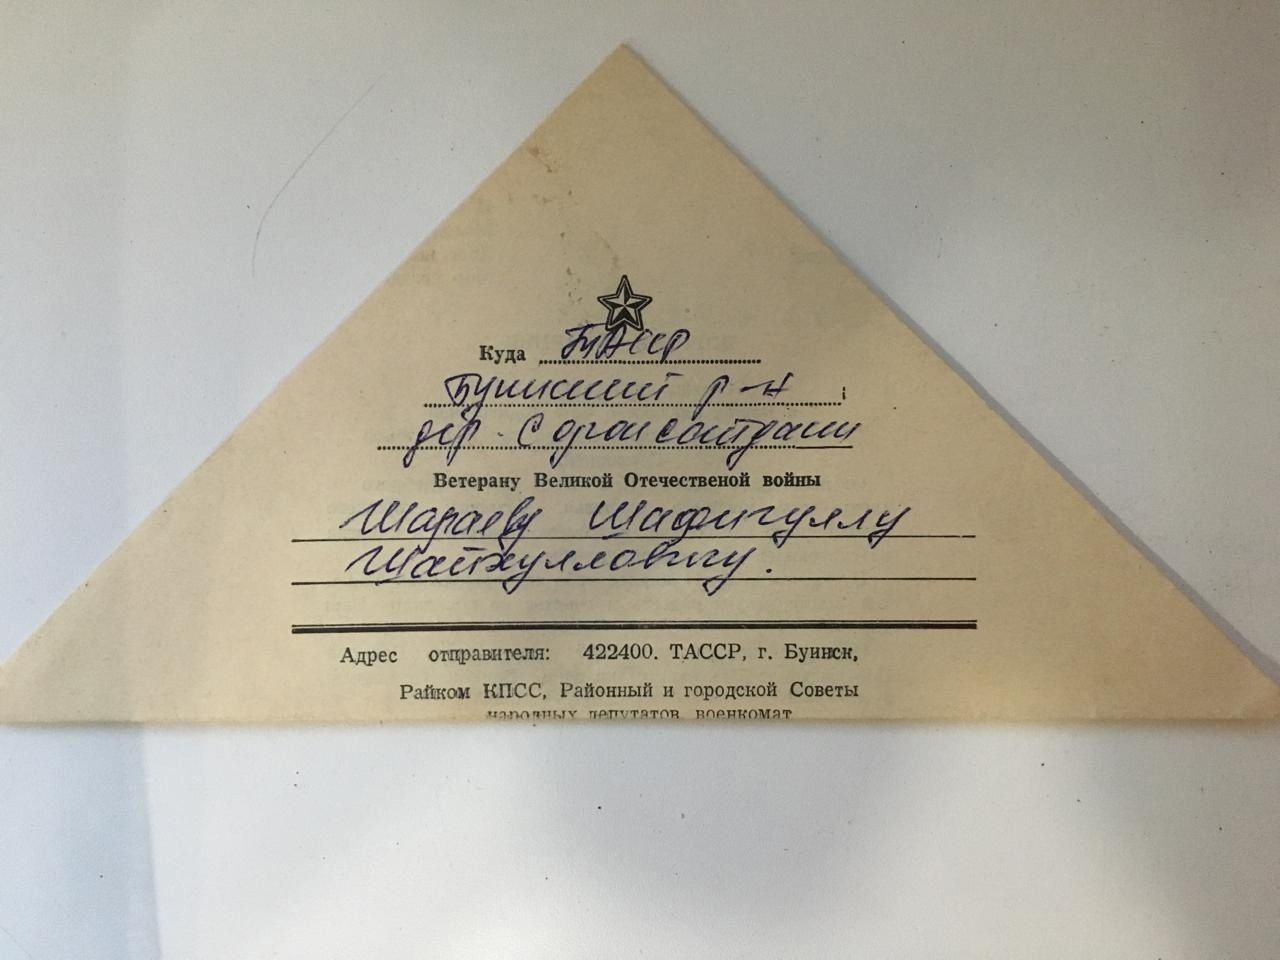 Куда ТАССР
Буинский р-н
дер. Сорок Сайдаки
Ветерану Великой Отечественой войны
Шараеву Шафигуллу
Шайхулловичу.
Адрес отправителя: 422400. ТАССР, г. Буинск,
Райком КПСС, Районный и городской Советы
народных депутатов, военкомат